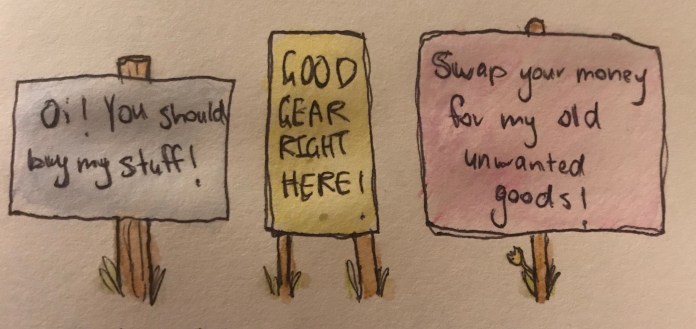 Oi! You should
buy my stuff!
GOOD
GEAR
RIGHT
HERE!
Swap your money
for my old
unwanted
goods!